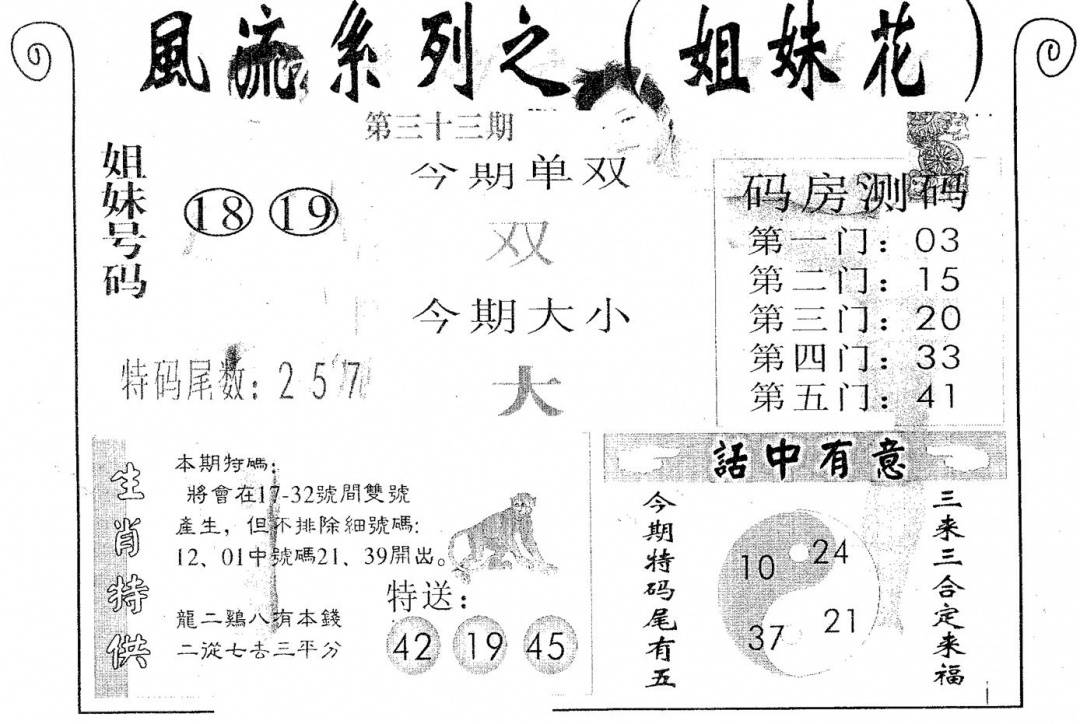 風流系列之（姐妹花）
第三十三期
姐妹号码
18 19
今期单双
双
今期大小
大
特码尾数：2 5 7
码房测码
第一门：03
第二门：15
第三门：20
第四门：33
第五门：41
生肖特供
本期特碼：
將會在17-32號間雙號
產生，但不排除細號碼：
12、01中號碼21、39開出。
龍二鷄八有本錢
二從七去三平分
特送：
42 19 45
話中有意
今期特码尾有五
10 24
37 21
三来三合定来福